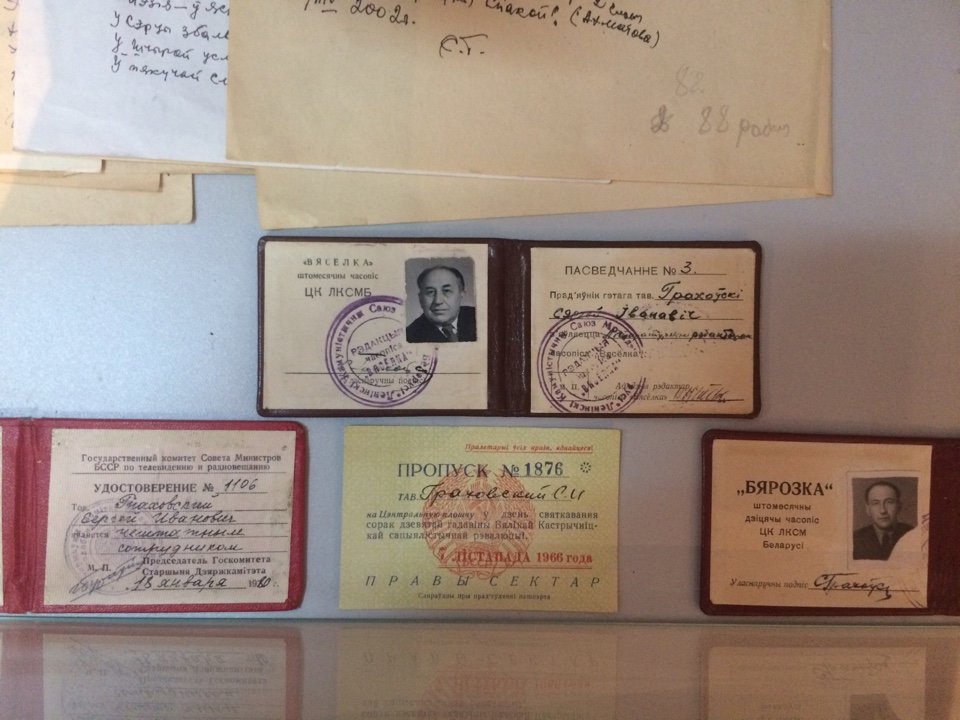 у сэрцы
у шчырай
2002г.
(Ахматова)
С.Г.
82
88 радк
«ВЯСЁЛКА»
штомесячны часопіс
ЦК ЛКСМБ
РЭДАКЦЫЯ
часопіса
"ВЯСЁЛКА"
ПАСВЕДЧАННЕ № 3.
Прад'яўнік гэтага тав. Грахоўскі
Сяргей Іванавіч
рэдактар
часопіса «Вясёлка»
М. П. Адказны рэдактар
часопіса «Вясёлка»
Государственный комитет Совета Министров
БССР по телевидению и радиовещанию
УДОСТОВЕРЕНИЕ № 1106
Тов. Граховский
Сергей Иванович
является нештатным
сотрудником
М. П. Председатель Госкомитета
Старшыня Дзяржкамітэта
13 января 1980г.
Пралетарыі ўсіх краін, яднайцеся!
ПРОПУСК № 1876
ТАВ. Граховский С.И
на Цэнтральную плошчу ў дзень святкавання
сорак дзевятай гадавіны Вялікай Кастрычніц-
кай сацыялістычнай рэвалюцыі.
7 ЛІСТАПАДА 1966 года
ПРАВЫ СЕКТАР
Сапраўдны пры прад'яўленні пашпарта
„БЯРОЗКА“
штомесячны
дзіцячы часопіс
ЦК ЛКСМ
Беларусі
Уласнаручны подпіс С. Грахоўскі